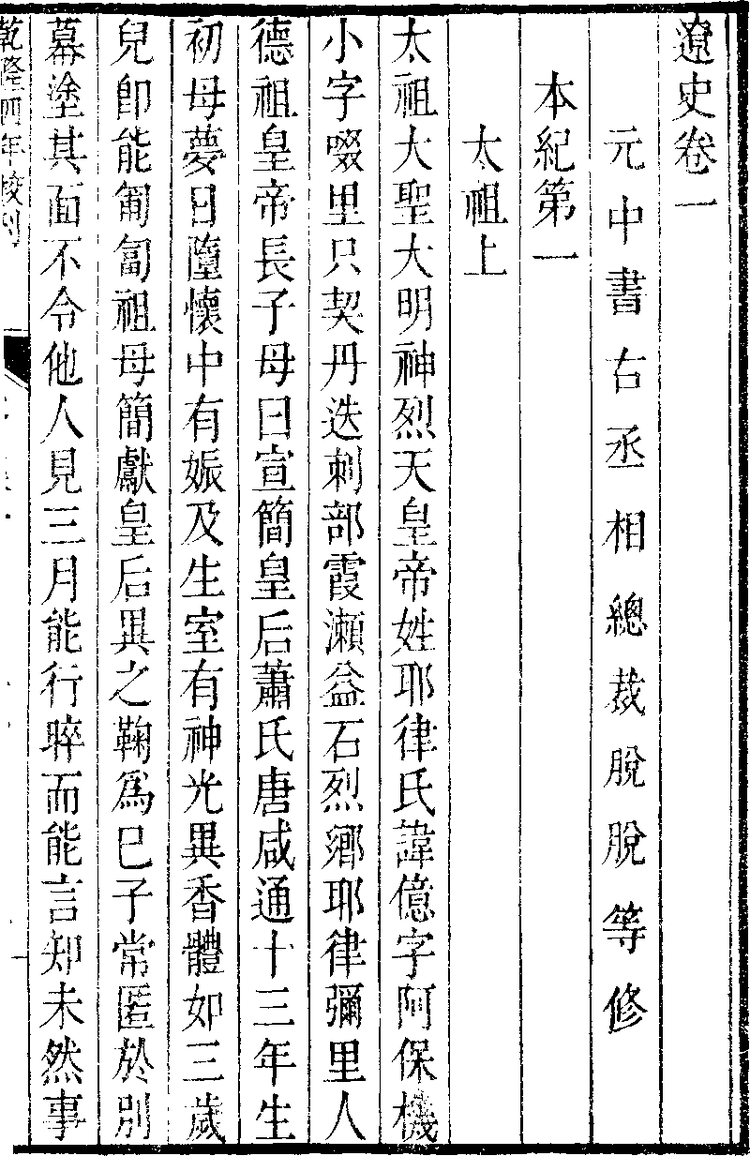 遼史卷一
元中書右丞相總裁脫脫等修
本紀第一
太祖上
太祖大聖大明神烈天皇帝姓耶律氏諱億字阿保機
小字啜里只契丹迭剌部霞瀨益石烈鄉耶律彌里人
德祖皇帝長子母曰宣簡皇后蕭氏唐咸通十三年生
初母夢日墮懷中有娠及生室有神光異香體如三歲
兒卽能匍匐祖母簡獻皇后異之鞠爲已子常匿於別
幕塗其面不令他人見三月能行晬而能言知未然事
乾隆四年校刊